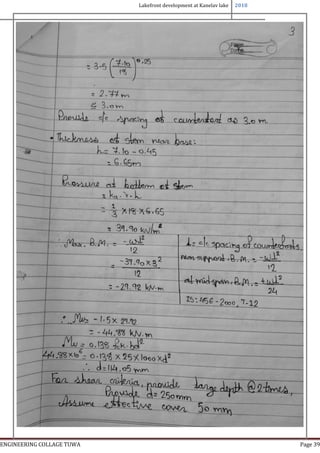 Lakefront development at Kanelav lake 2018
3
= 3.5 (7.10/18)^0.25
= 2.77 m
≤ 3.0 m
Provide c/c spacing of counterfort as 3.0 m.
• Thickness of stem near base:
h = 7.10 - 0.45
= 6.65m
Pressure at bottom of stem
= ka . γ . h
= 1/3 × 18 × 6.65
= 39.90 kN/m²
• Max. B.M. = -wl²/12
= -39.90 × 3²/12
= -29.92 kN.m
l = c/c spacing of counterforts.
near support - B.M. = -wl²/12
at mid span - B.M. = +wl²/24
IS: 456-2000, T-12
∴ Mu = -1.5 × 29.92
= -44.88 kN.m
Mu = 0.138 fck bd²
44.88×10⁶ = 0.138 × 25 × 1000 × d²
∴ d = 114.05 mm
For shear criteria, provide large depth @ 2 times,
Provide d = 250mm
Assume effective cover 50 mm
ENGINEERING COLLAGE TUWA Page 39